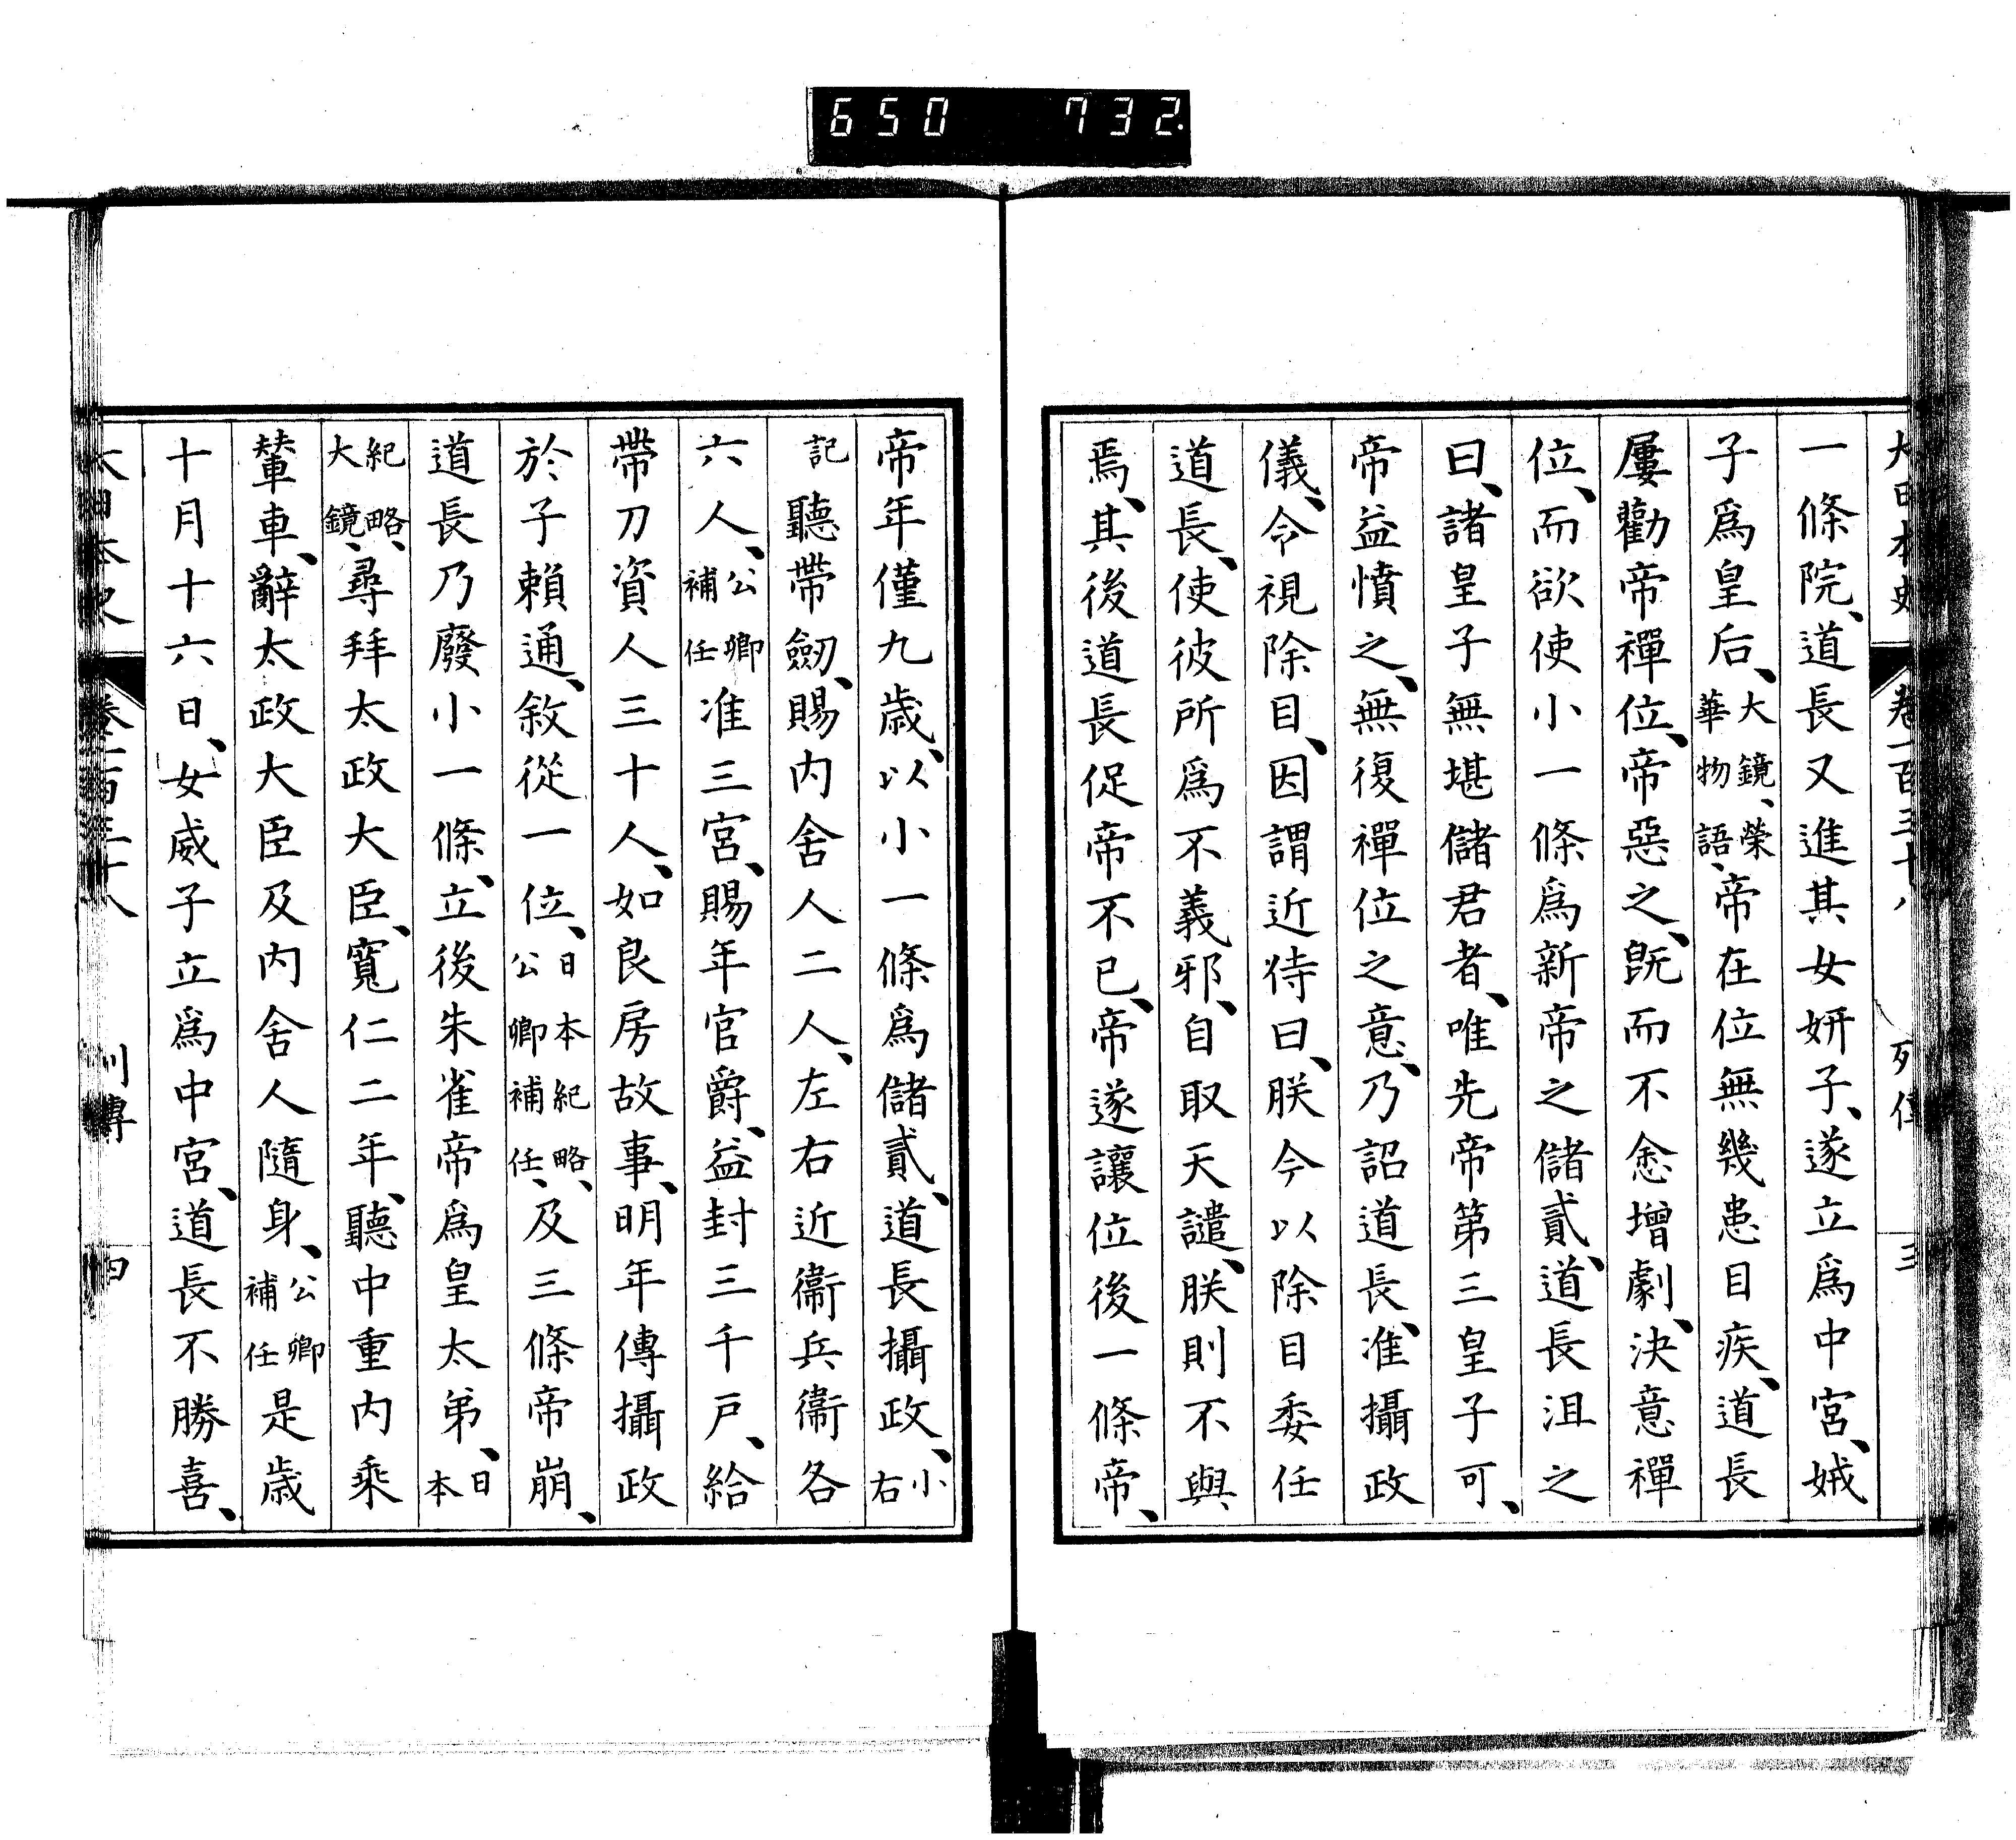 650 732.
大日本史 卷一百三十八 列傳 三
一條院、道長又進其女妍子、遂立爲中宮、娍
子爲皇后、大鏡、榮華物語、帝在位無幾患目疾、道長
屢勸帝禪位、帝惡之、旣而不悆增劇、決意禪
位、而欲使小一條爲新帝之儲貳、道長沮之
曰、諸皇子無堪儲君者、唯先帝第三皇子可、
帝益憤之、無復禪位之意、乃詔道長、准攝政
儀、令視除目、因謂近侍曰、朕今以除目委任
道長、使彼所爲不義邪、自取天譴、朕則不與
焉、其後道長促帝不已、帝遂讓位後一條帝、
帝年僅九歳、以小一條爲儲貳、道長攝政、小右
記聽帶劒、賜内舍人二人、左右近衞兵衞各
六人、公卿補任准三宮、賜年官爵、益封三千戸、給
帶刀資人三十人、如良房故事、明年傳攝政
於子賴通、敘從一位、日本紀略、公卿補任、及三條帝崩、
道長乃廢小一條、立後朱雀帝爲皇太弟、日本
紀略、大鏡、尋拜太政大臣、寬仁二年、聽中重内乘
輦車、辭太政大臣及内舍人隨身、公卿補任是歳
十月十六日、女威子立爲中宮、道長不勝喜、
大日本史 卷一百三十八 列傳 四